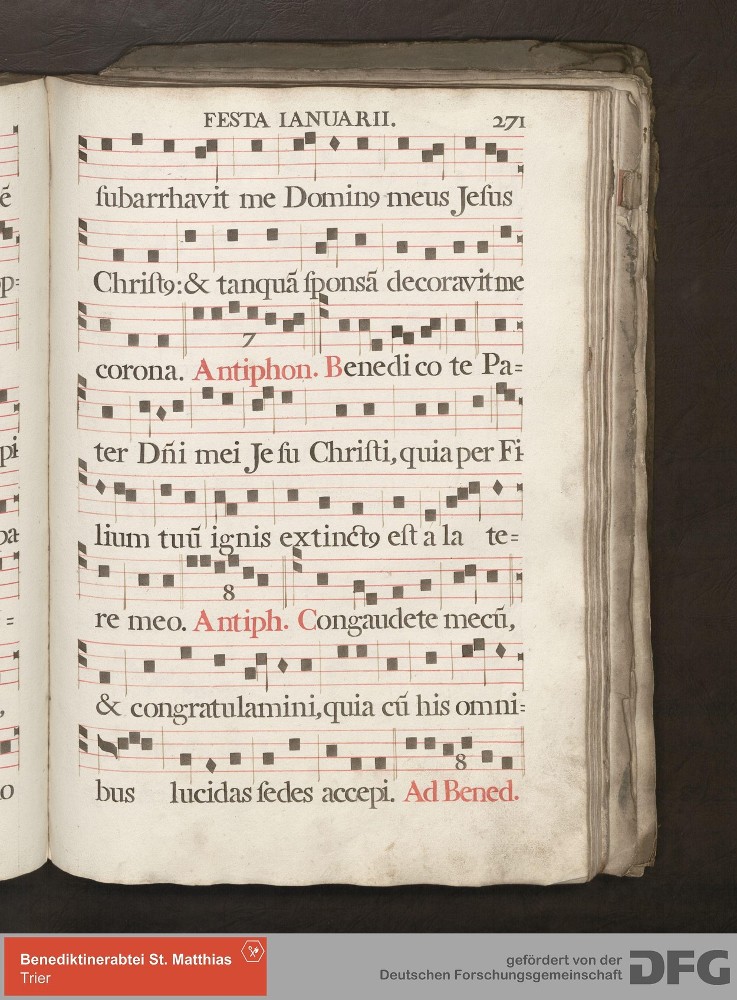 FESTA IANUARII. 271
ſubarrhavit me Dominꝰ meus Jeſus
Chriſtꝰ: & tanquã ſponsã decoravit me
7
corona. Antiphon. Benedico te Pa=
ter Dñi mei Jeſu Chriſti, quia per Fi-
lium tuũ ignis extinctꝰ eſt a la te=
8
re meo. Antiph. Congaudete mecũ,
& congratulamini, quia cũ his omni=
8
bus lucidas ſedes accepi. Ad Bened.
Benediktinerabtei St. Matthias
Trier
gefördert von der
Deutschen Forschungsgemeinschaft DFG